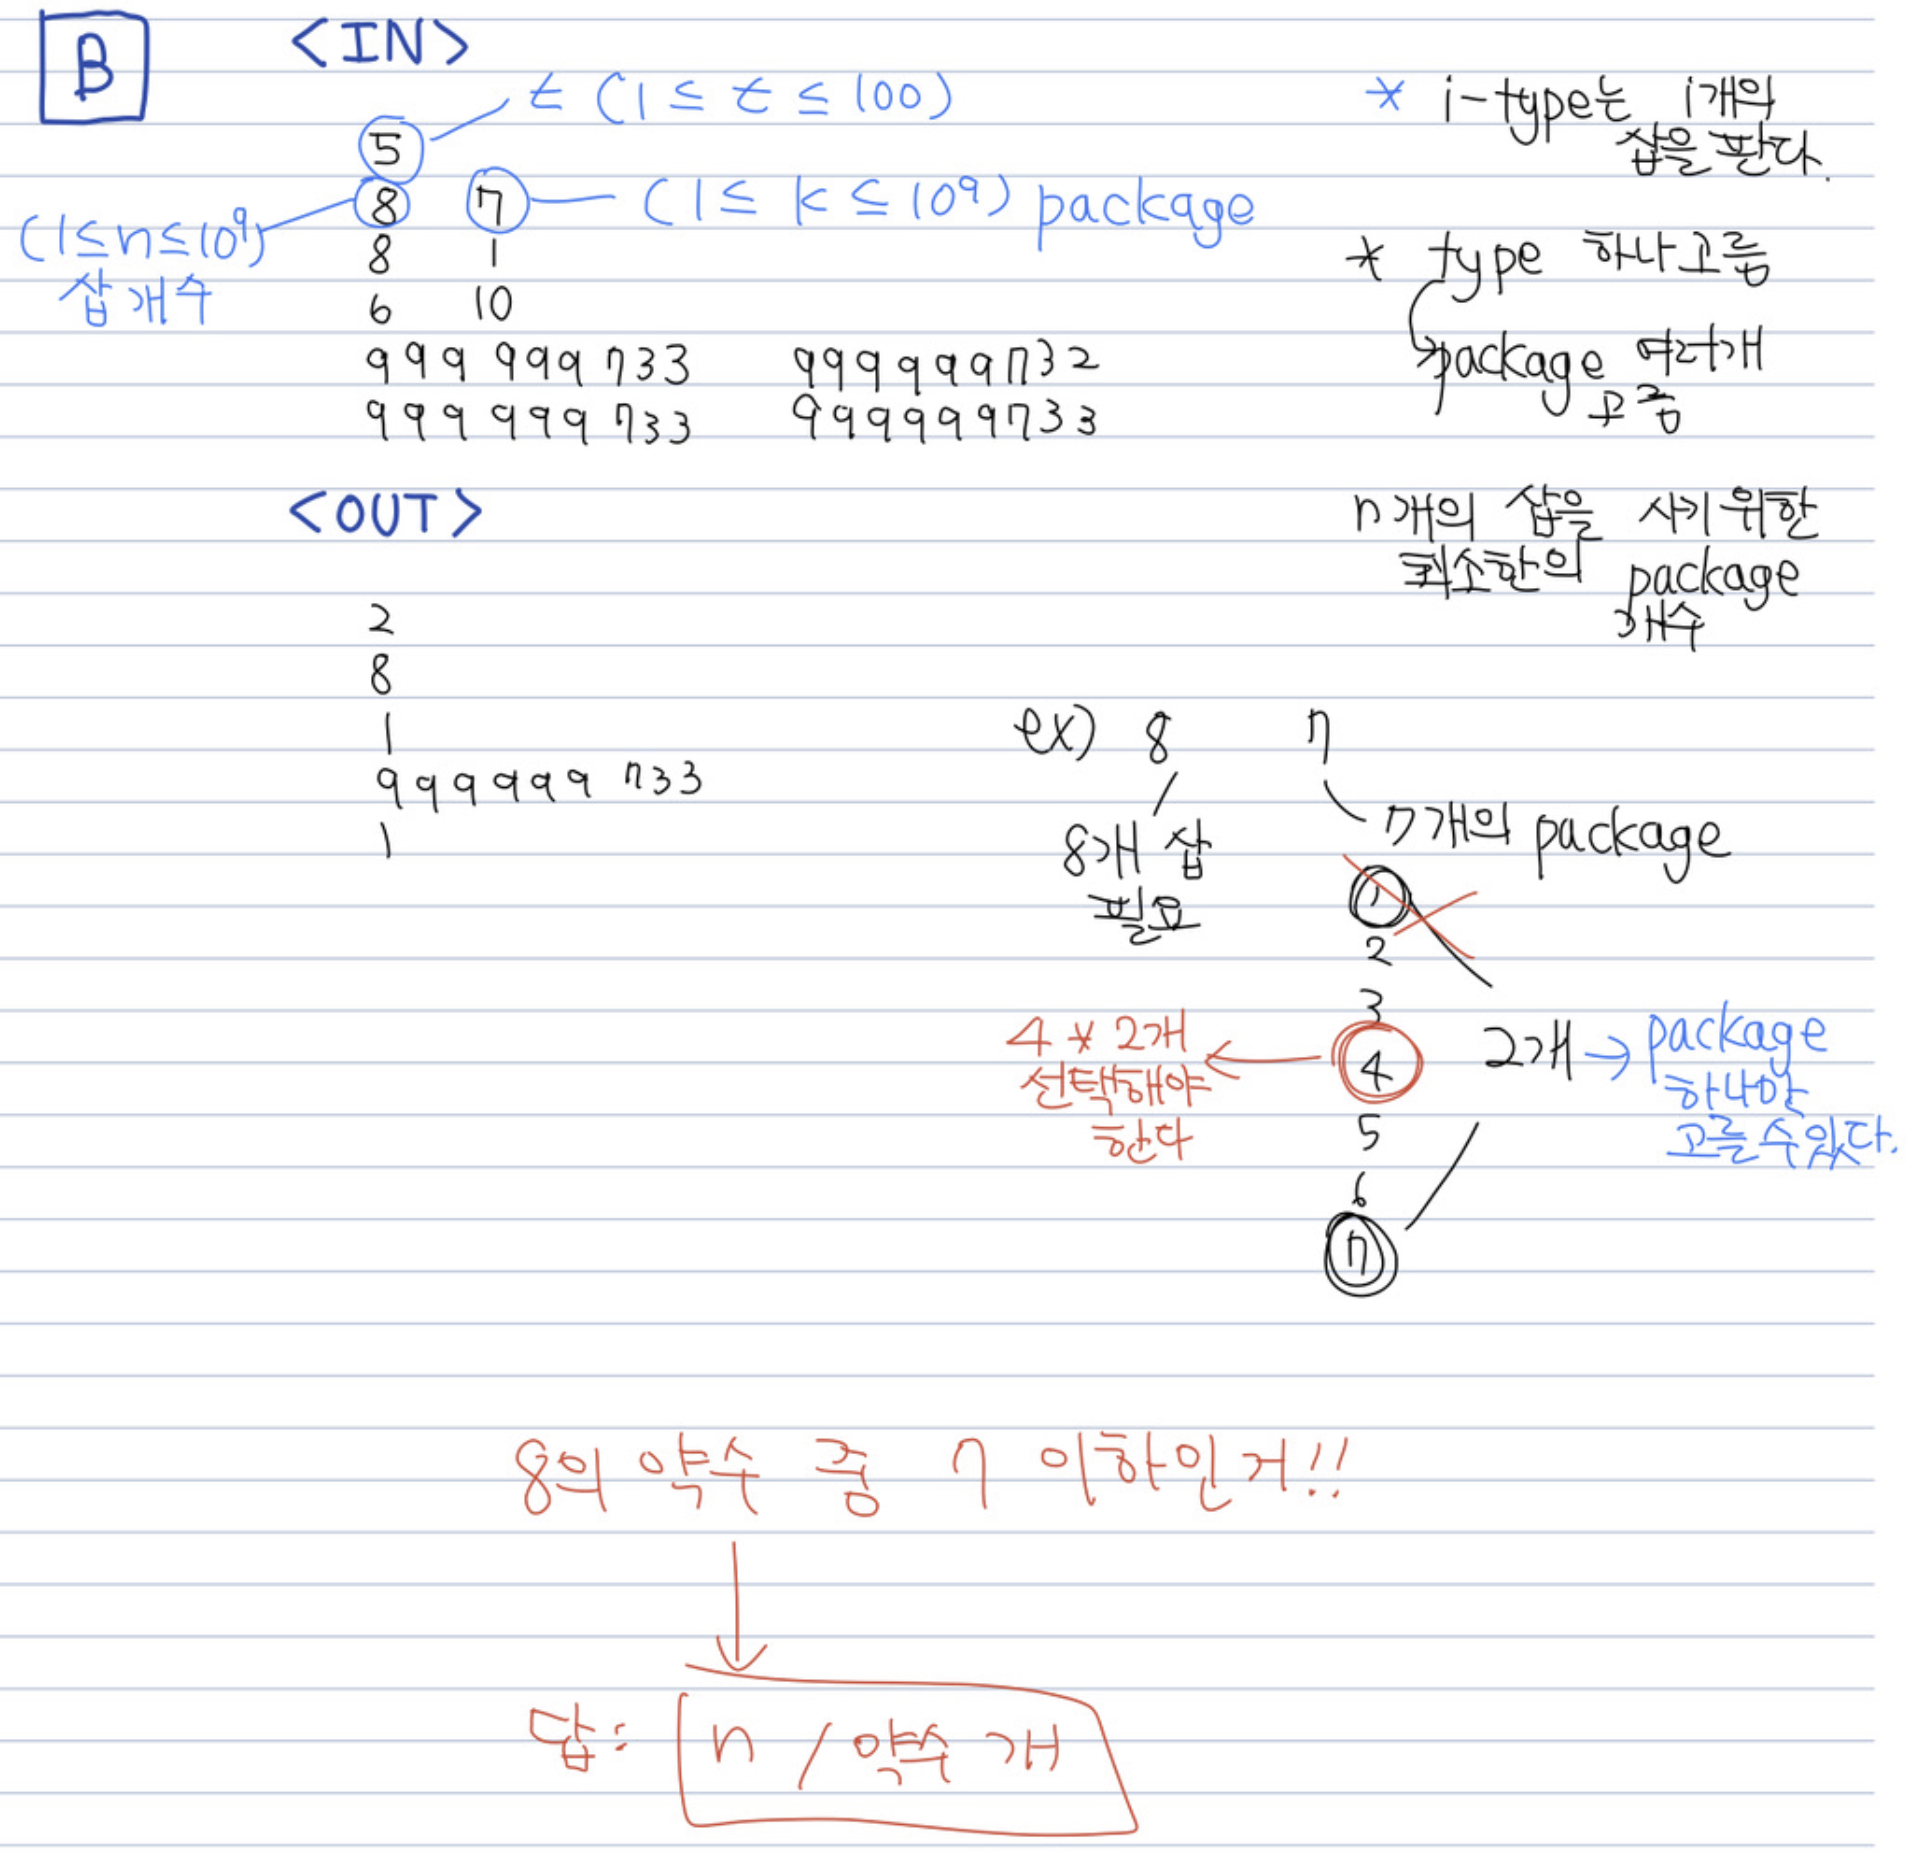 B
<IN>
t (1 ≤ t ≤ 100)
5
8 7
(1 ≤ k ≤ 10⁹) package
(1≤n≤10⁹)
삽 개수
8 1
6 10
999 999 733 999999732
999 999 733 999999733
* i-type는 i개의
삽을 판다.
* type 하나 고름
package 여러개
고름
n개의 삽을 사기 위한
최소한의 package
개수
<OUT>
2
8
1
999999 733
1
ex) 8 7
8개 삽
필요
7개의 package
1
2
3
4
5
6
7
4 * 2개
선택해야
한다
2개 → package
하나만
고를 수 있다.
8의 약수 중 7 이하인 거!!
답: n / 약수 개